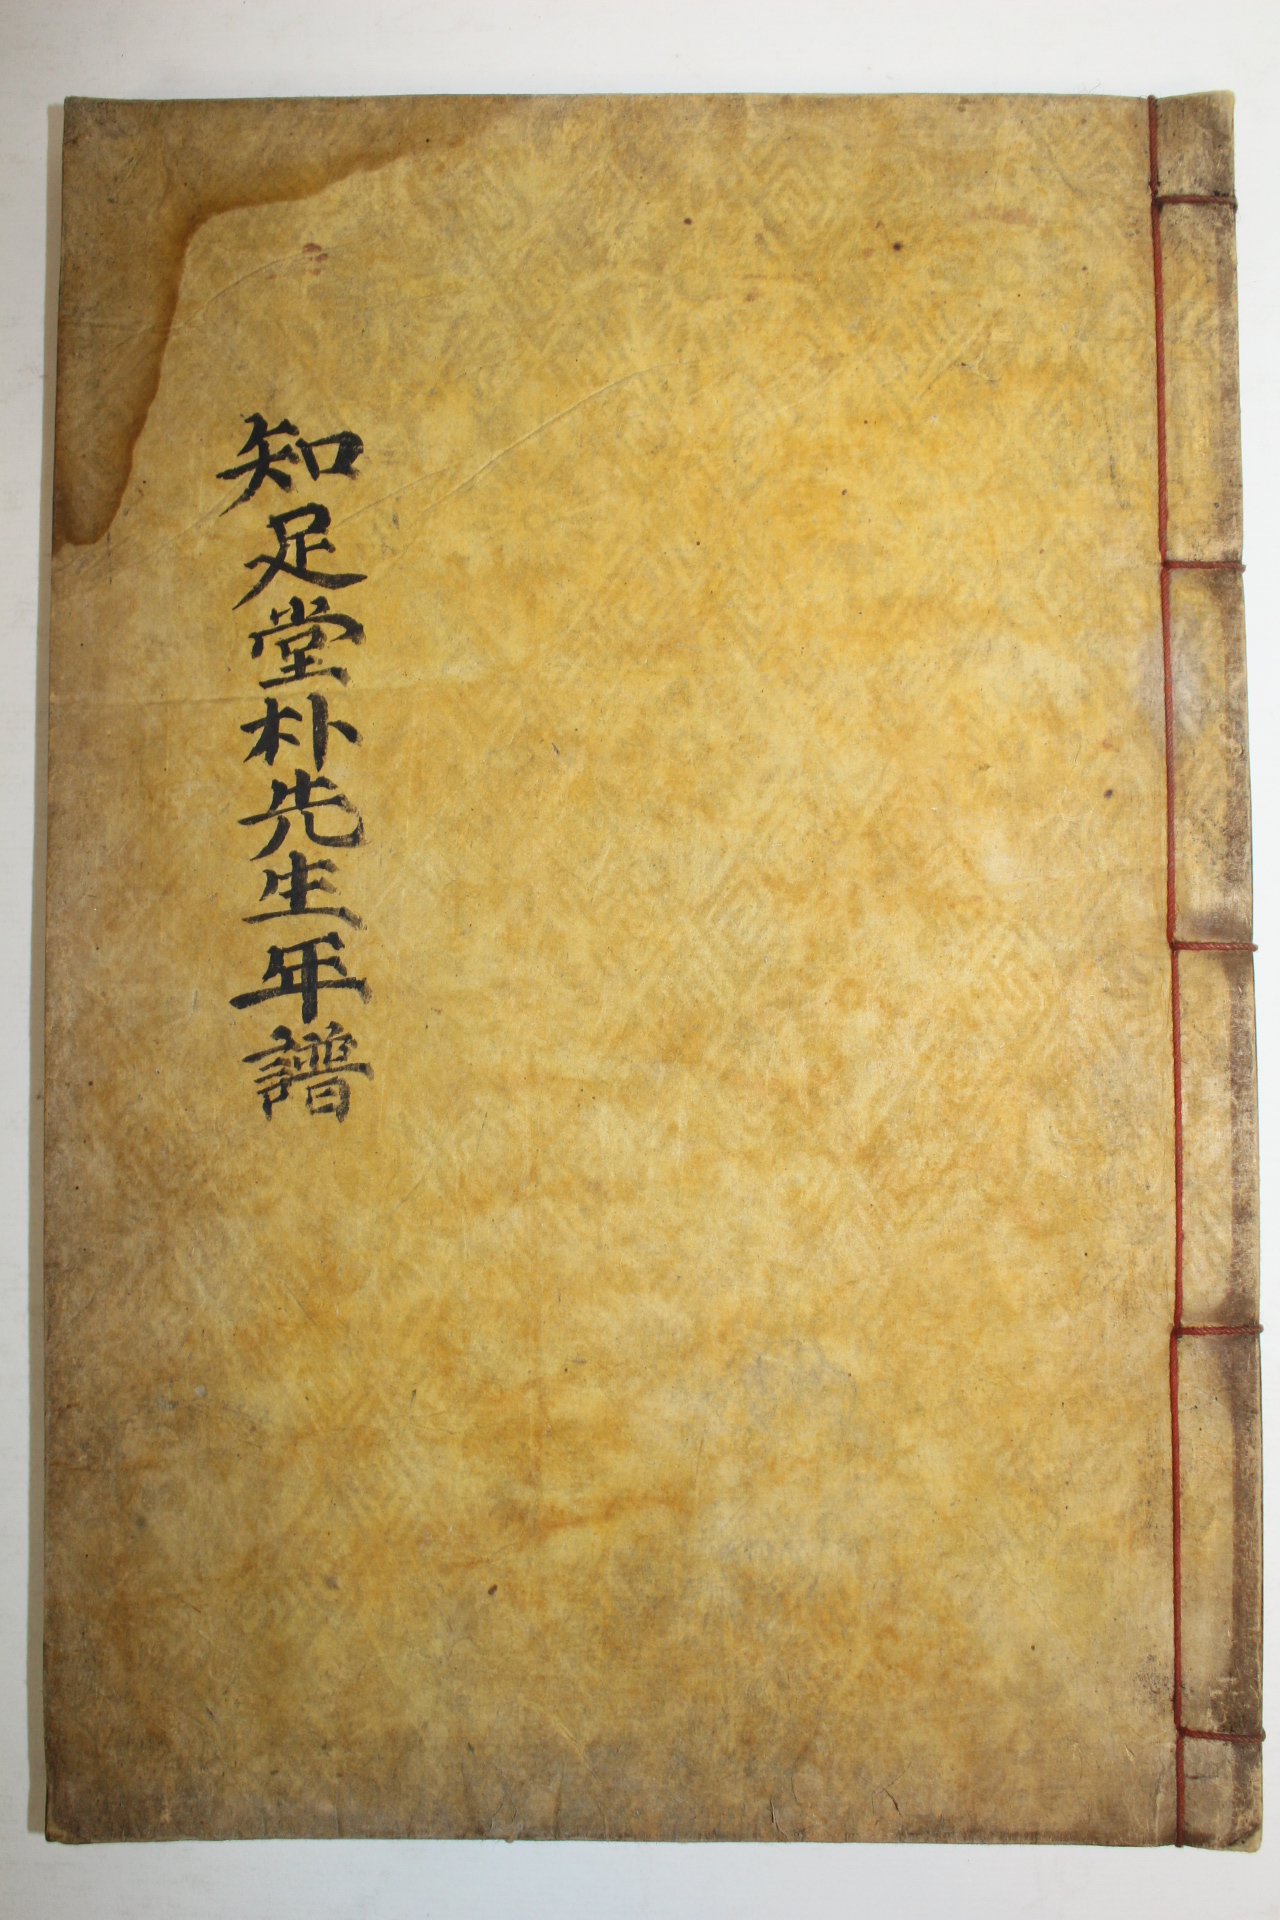 知足堂朴先生年譜